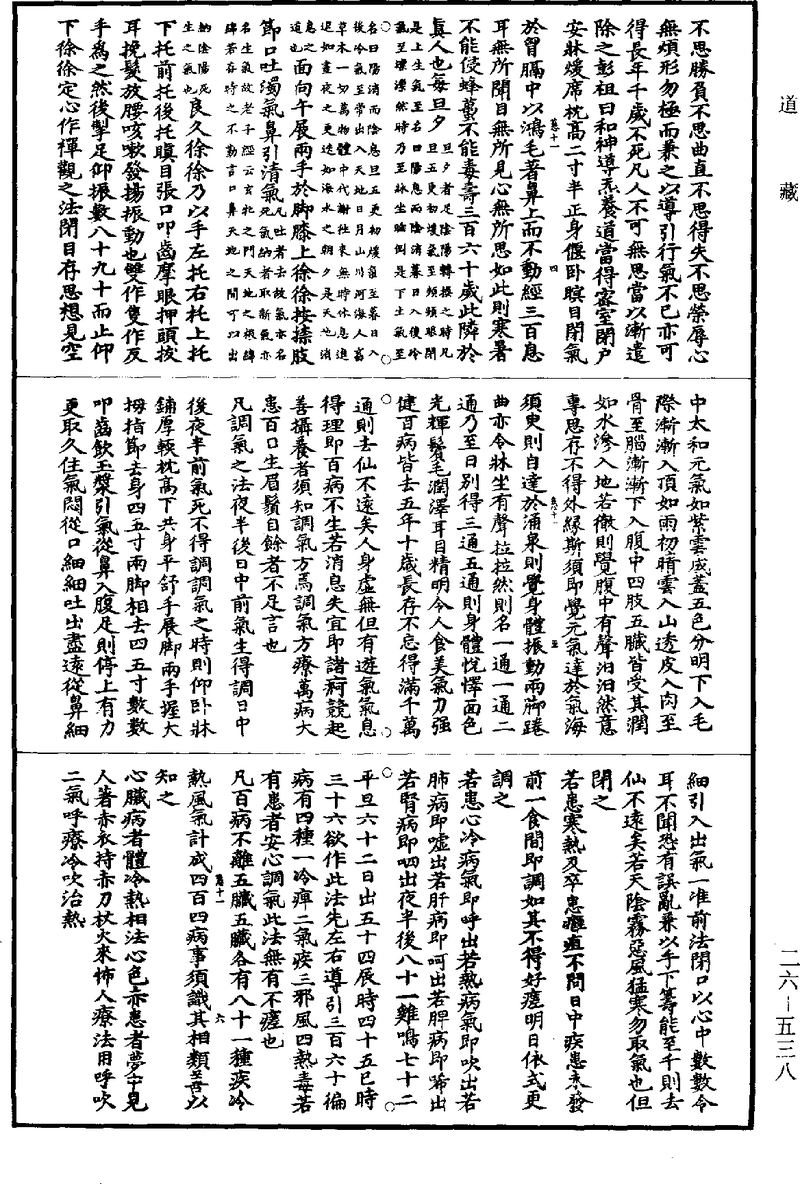 道藏
不思勝負不思曲直不思得失不思榮辱心
無煩形勿極而兼之以導引行氣不已亦可
得長年千歲不死凡人不可無思當以漸遣
除之彭祖曰和神導炁養道當得密室閉戶
安牀煖席枕高二寸半正身偃卧瞑目閉氣
卷十一 四
於胷膈中以鴻毛著鼻上而不動經三百息
耳無所聞目無所見心無所思如此則寒暑
不能侵蜂蠆不能毒壽三百六十歲此隣於
真人也每旦夕
旦夕者是陰陽轉換之時凡
旦五更初煖氣至頻頻眼開
是上生氣至名曰陽息而陰消暮日入後冷
氣至凜凜然時乃至牀坐睡倒是下土氣至
名曰陽消而陰息旦五更初煖氣至暮日入
後冷氣至常出入天地日月山川河海人畜
草木一切萬物體中代謝往來無時休息進
退如晝夜之更迭如海水之朝夕是天地消
息之
道也
面向午展兩手於脚膝上徐徐按捺肢
節口吐濁氣鼻引清氣
凡吐者去故氣亦名
死氣納者取新氣亦
名生氣故老子經云玄牝之門天地之根綿
綿若存時之不勤言口鼻天地之間可以出
納陰陽死
生之氣也
良久徐徐乃以手左托右托上托
下托前托後托瞋目張口叩齒摩眼押頭拔
耳挽髮放腰咳嗽發揚振動也雙作隻作反
手為之然後掣足仰振數八十九十而止仰
下徐徐定心作禪觀之法閉目存思想見空
中太和元氣如紫雲成蓋五色分明下入毛
際漸漸入頂如雨初晴雲入山透皮入肉至
骨至腦漸漸下入腹中四肢五臟皆受其潤
如水滲入地若徹則覺腹中有聲汩汩然意
專思存不得外緣斯須即覺元氣達於氣海
卷十一 五
須臾則自達於涌泉則覺身體振動兩脚踡
曲亦令牀坐有聲拉拉然則名一通一通二
通乃至日別得三通五通則身體悅懌面色
光輝鬢毛潤澤耳目精明令人食美氣力强
健百病皆去五年十歲長存不忘得滿千萬
通則去仙不遠矣人身虛無但有遊氣氣息
得理即百病不生若消息失宜即諸痾競起
善攝養者須知調氣方焉調氣方療萬病大
患百日生眉鬚自餘者不足言也
凡調氣之法夜半後日中前氣生得調日中
後夜半前氣死不得調調氣之時則仰卧牀
鋪厚軟枕高下共身平舒手展脚兩手握大
拇指節去身四五寸兩脚相去四五寸數數
叩齒飲玉漿引氣從鼻入腹足則停上有力
更取久住氣悶從口細細吐出盡遠從鼻細
細引入出氣一准前法閉口以心中數數令
耳不聞恐有誤亂兼以手下籌能至千則去
仙不遠矣若天陰霧惡風猛寒勿取氣也但
閉之
若患寒熱及卒患癰疽不問日中疾患未發
前一食間即調如其不得好瘥明日依式更
調之
若患心冷病氣即呼出若熱病氣即吹出若
肺病即噓出若肝病即呵出若脾病即唏出
若腎病即呬出夜半後八十一雞鳴七十二
平旦六十二日出五十四辰時四十五巳時
三十六欲作此法先左右導引三百六十徧
病有四種一冷痺二氣疾三邪風四熱毒若
有患者安心調氣此法無有不瘥也
凡百病不離五臟五臟各有八十一種疾冷
卷十一 六
熱風氣計成四百四病事須識其相類善以
知之
心臟病者體冷熱相法心色赤患者夢中見
人著赤衣持赤刀杖火來怖人療法用呼吹
二氣呼療冷吹治熱
二六—五三八